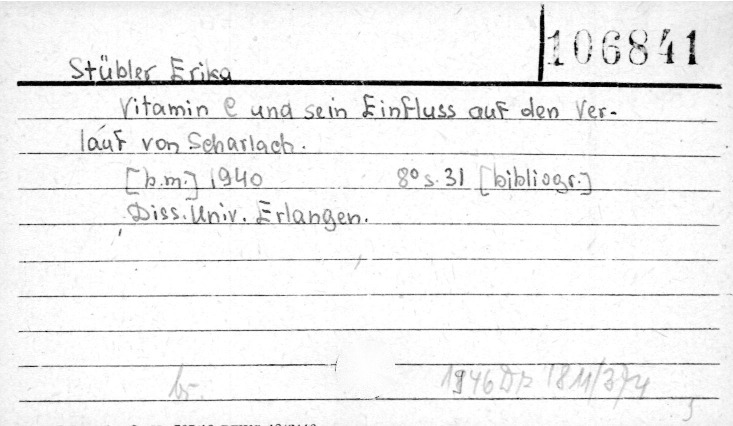 106841
Stübler Erika
Vitamin C und sein Einfluss auf den Ver-
lauf von Scharlach.
[b.m.] 1940 8° s. 31 [bibliogr.]
Diss. Univ. Erlangen.
br.